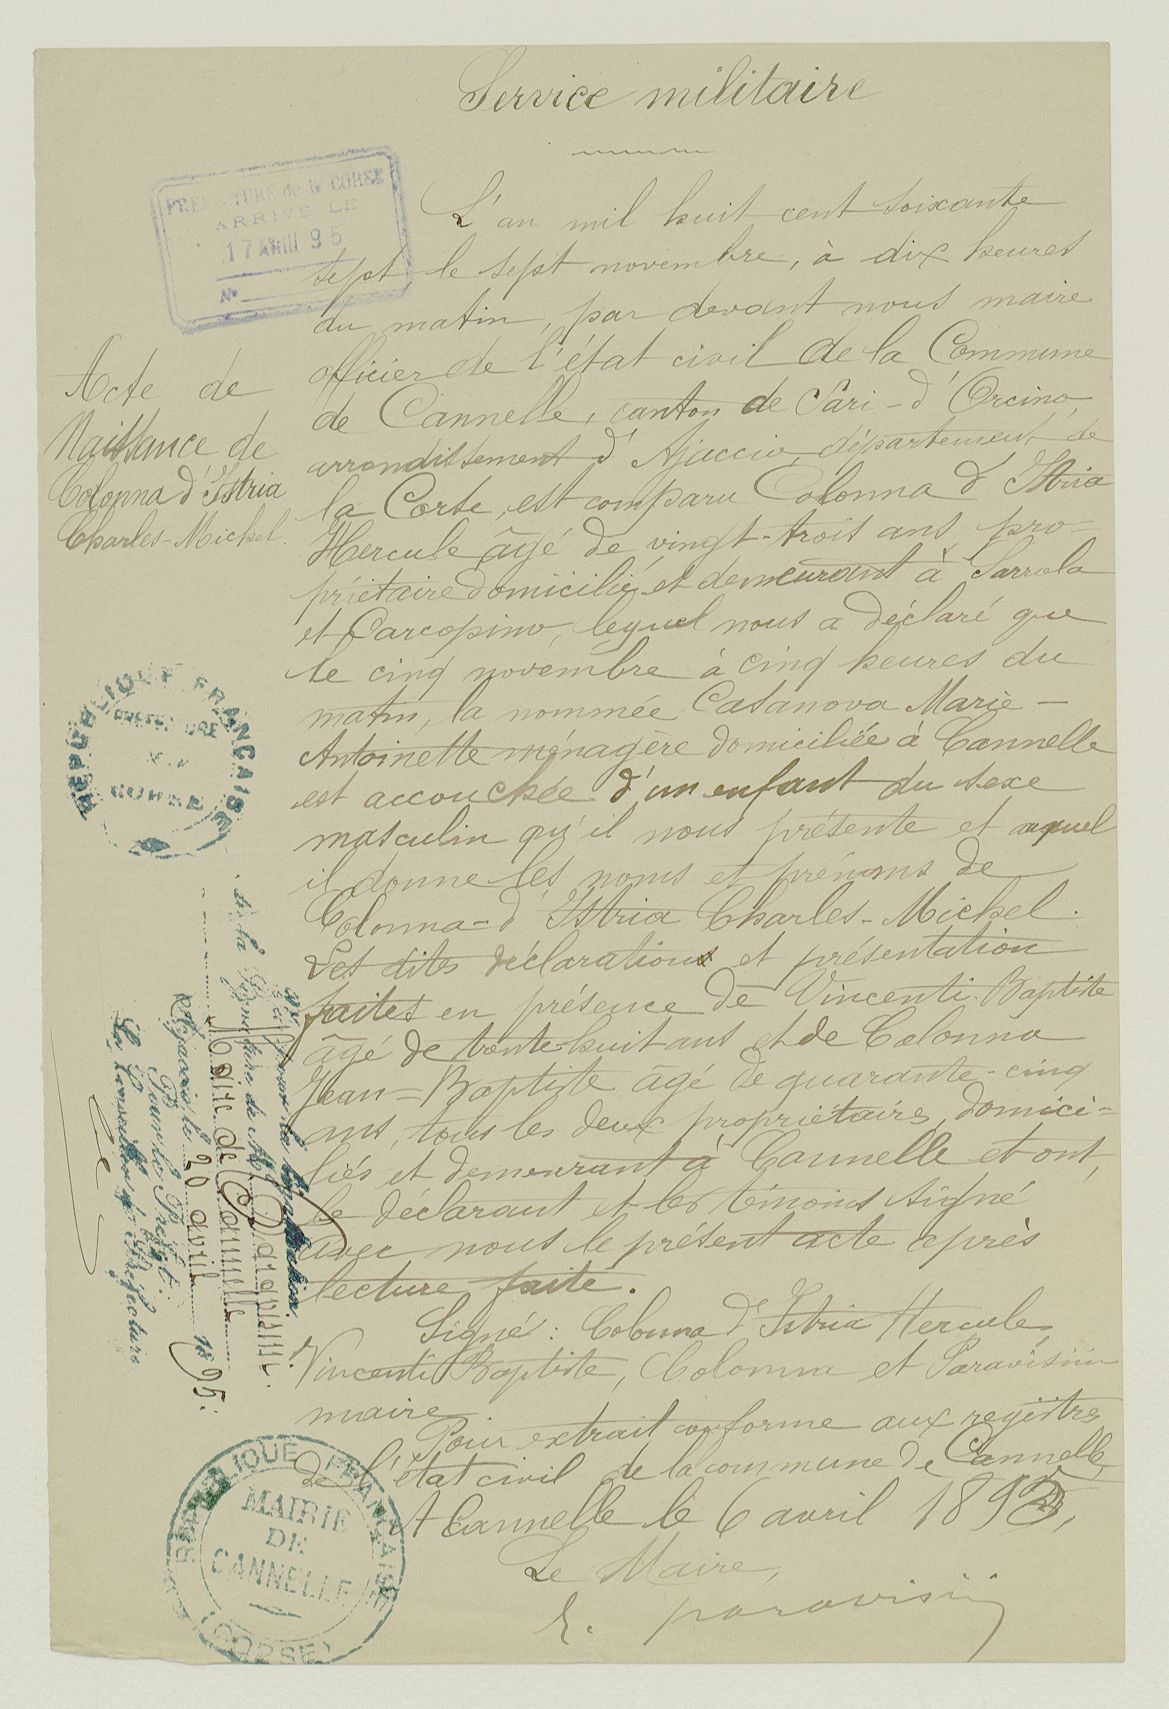 Service militaire
PREFECTURE de la CORSE
ARRIVÉ LE
17 AVRIL 95
N°
Acte de
Naissance de
Colonna d'Istria
Charles-Michel.
L'an mil huit cent soixante
sept le sept novembre, à dix heures
du matin, par devant nous maire
officier de l'état civil de la Commune
de Cannelle, canton de Sari-d'Orcino,
arrondissement d'Ajaccio, département de
la Corse, est comparu Colonna d'Istria
Hercule âgé de vingt-trois ans, pro-
priétaire domicilié et demeurant à Sarrola
et Carcopino, lequel nous a déclaré que
le cinq novembre à cinq heures du
matin, la nommée Casanova Marie-
Antoinette ménagère domiciliée à Cannelle
est accouchée d'un enfant du sexe
masculin qu'il nous présente et auquel
il donne les noms et prénoms de
Colonna-d'Istria Charles-Michel.
Les dites déclarations et présentation
faites en présence de Vincenti Baptiste
âgé de trente-huit ans et de Colonna
Jean-Baptiste âgé de quarante-cinq
ans, tous les deux propriétaires, domici-
liés et demeurant à Cannelle et ont,
le déclarant et les témoins signé
avec nous le présent acte après
lecture faite.
Signé : Colonna d'Istria Hercule,
Vincenti Baptiste, Colonna et Paravisini
maire.
Pour extrait conforme aux registres
de l'état civil de la commune de Cannelle,
A Cannelle le 6 avril 1895,
Le Maire,
paravisini
REPUBLIQUE FRANÇAISE
PREFECTURE
CORSE
Vu pour la législation
de la Signature de M. Paravisini.
Maire de Cannelle
Ajaccio, le 20 avril 1895.
Pour le Préfet :
Le Conseiller de Préfecture
REPUBLIQUE FRANÇAISE
MAIRIE
DE
CANNELLE
(CORSE)